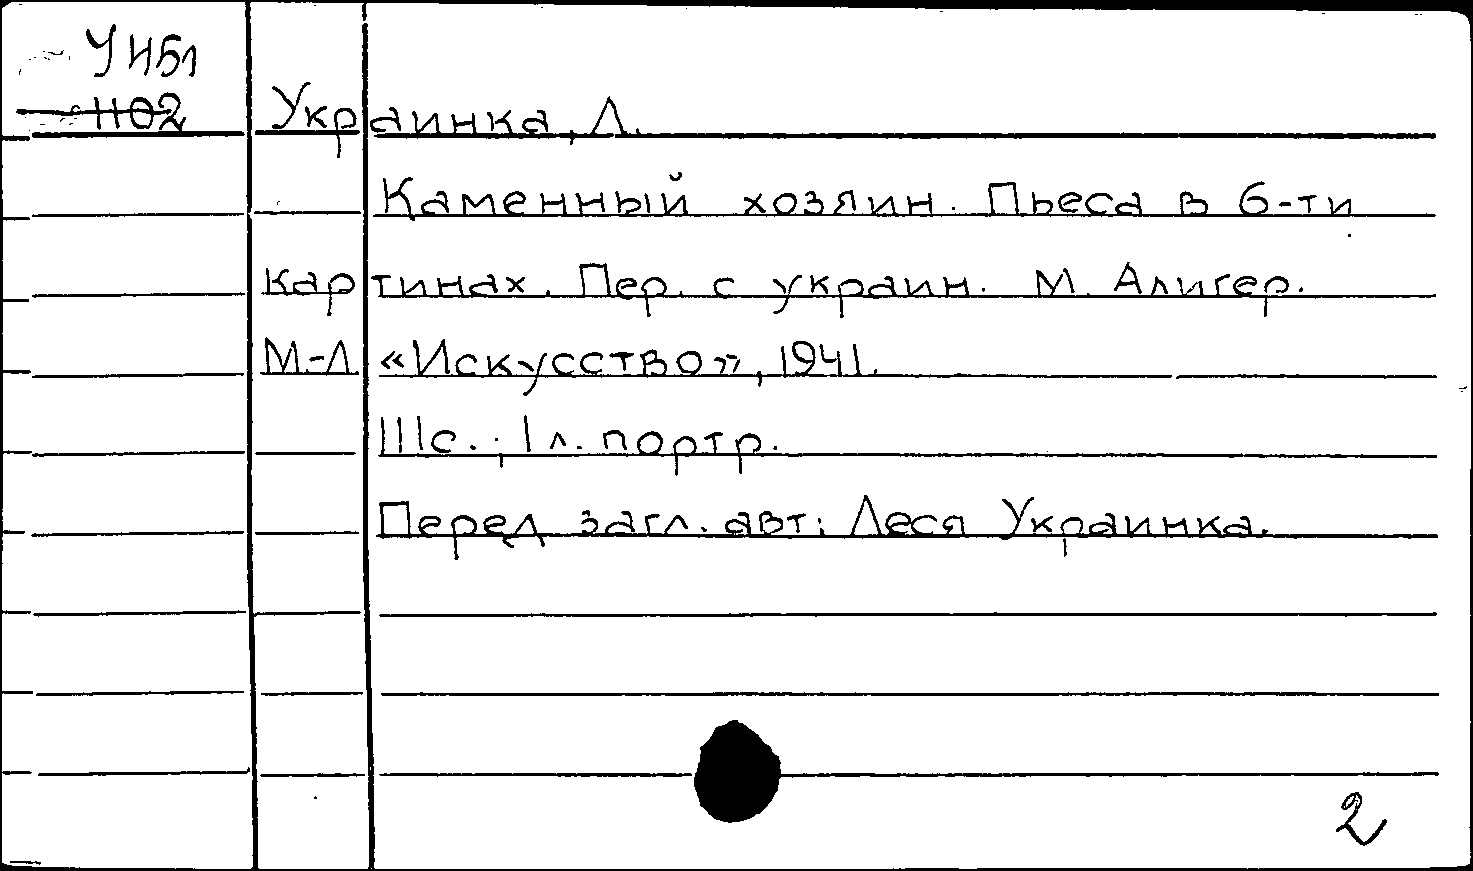 У451
1102
Украинка, Л.
Каменный хозяин. Пьеса в 6-ти
картинах. Пер. с украин. М. Алигер.
М.-Л. «Искусство», 1941.
111с.; 1 л. портр.
Перед загл. авт: Леся Украинка.
2